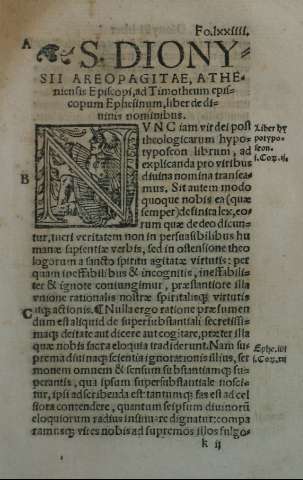 Fo.lxxiiii.
A
S. DIONY
SII AREOPAGITAE, ATHE
niensis Episcopi, ad Timotheum epis
copum Ephesinum, liber de di
uinis nominibus.
B
NVNC iam vir dei post
theologicarum hypo
typoseon librum, ad
explicanda pro viribus
diuina nomina transea
mus. Sit autem modo
quoque nobis ea (quæ
semper) definita lex, eo
rum quæ de deo dicun
tur, inseri veritatem non in persuasibilibus hu
manæ sapientiæ verbis, sed in ostensione theo
logorum a sancto spiritu agitatæ virtutis: per
quam ineffabilibus & incognitis, ineffabili
ter & ignote coniungimur, præstantiore illa
vnione rationalis nostræ spiritalisq; virtutis
C
actionis. ¶ Nulla ergo ratione præsumen
dum est aliquid de supersubstantiali secretissi
maq; deitate aut dicere aut cogitare, præter illa
quæ nobis sacra eloquia tradiderunt. Nam su
prema diuinaq; scientia ignorationis illius, ser
monem omnem & sensum substantiamq; su
perantis, qua ipsum supersubstantiale nosci
tur, ipsi adscribenda est: tantumq; fas est ad cel
siora contendere, quantum seipsum diuinorū
eloquiorum radius insinuare dignatur: compa
ramusq; vires nobis ad supremos illos fulgo-
k ij
Liber hy
potypo-
seon.
i.Cor.ij.
Ephe.iii
i.Cor.